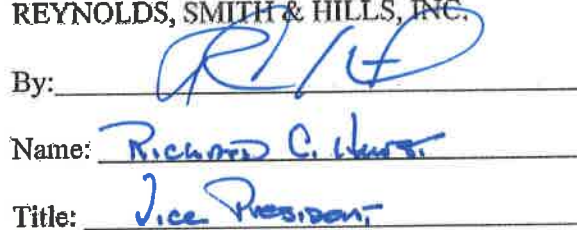 REYNOLDS, SMITH & HILLS, INC.
By:
Name: Richard C.
Title: Vice President